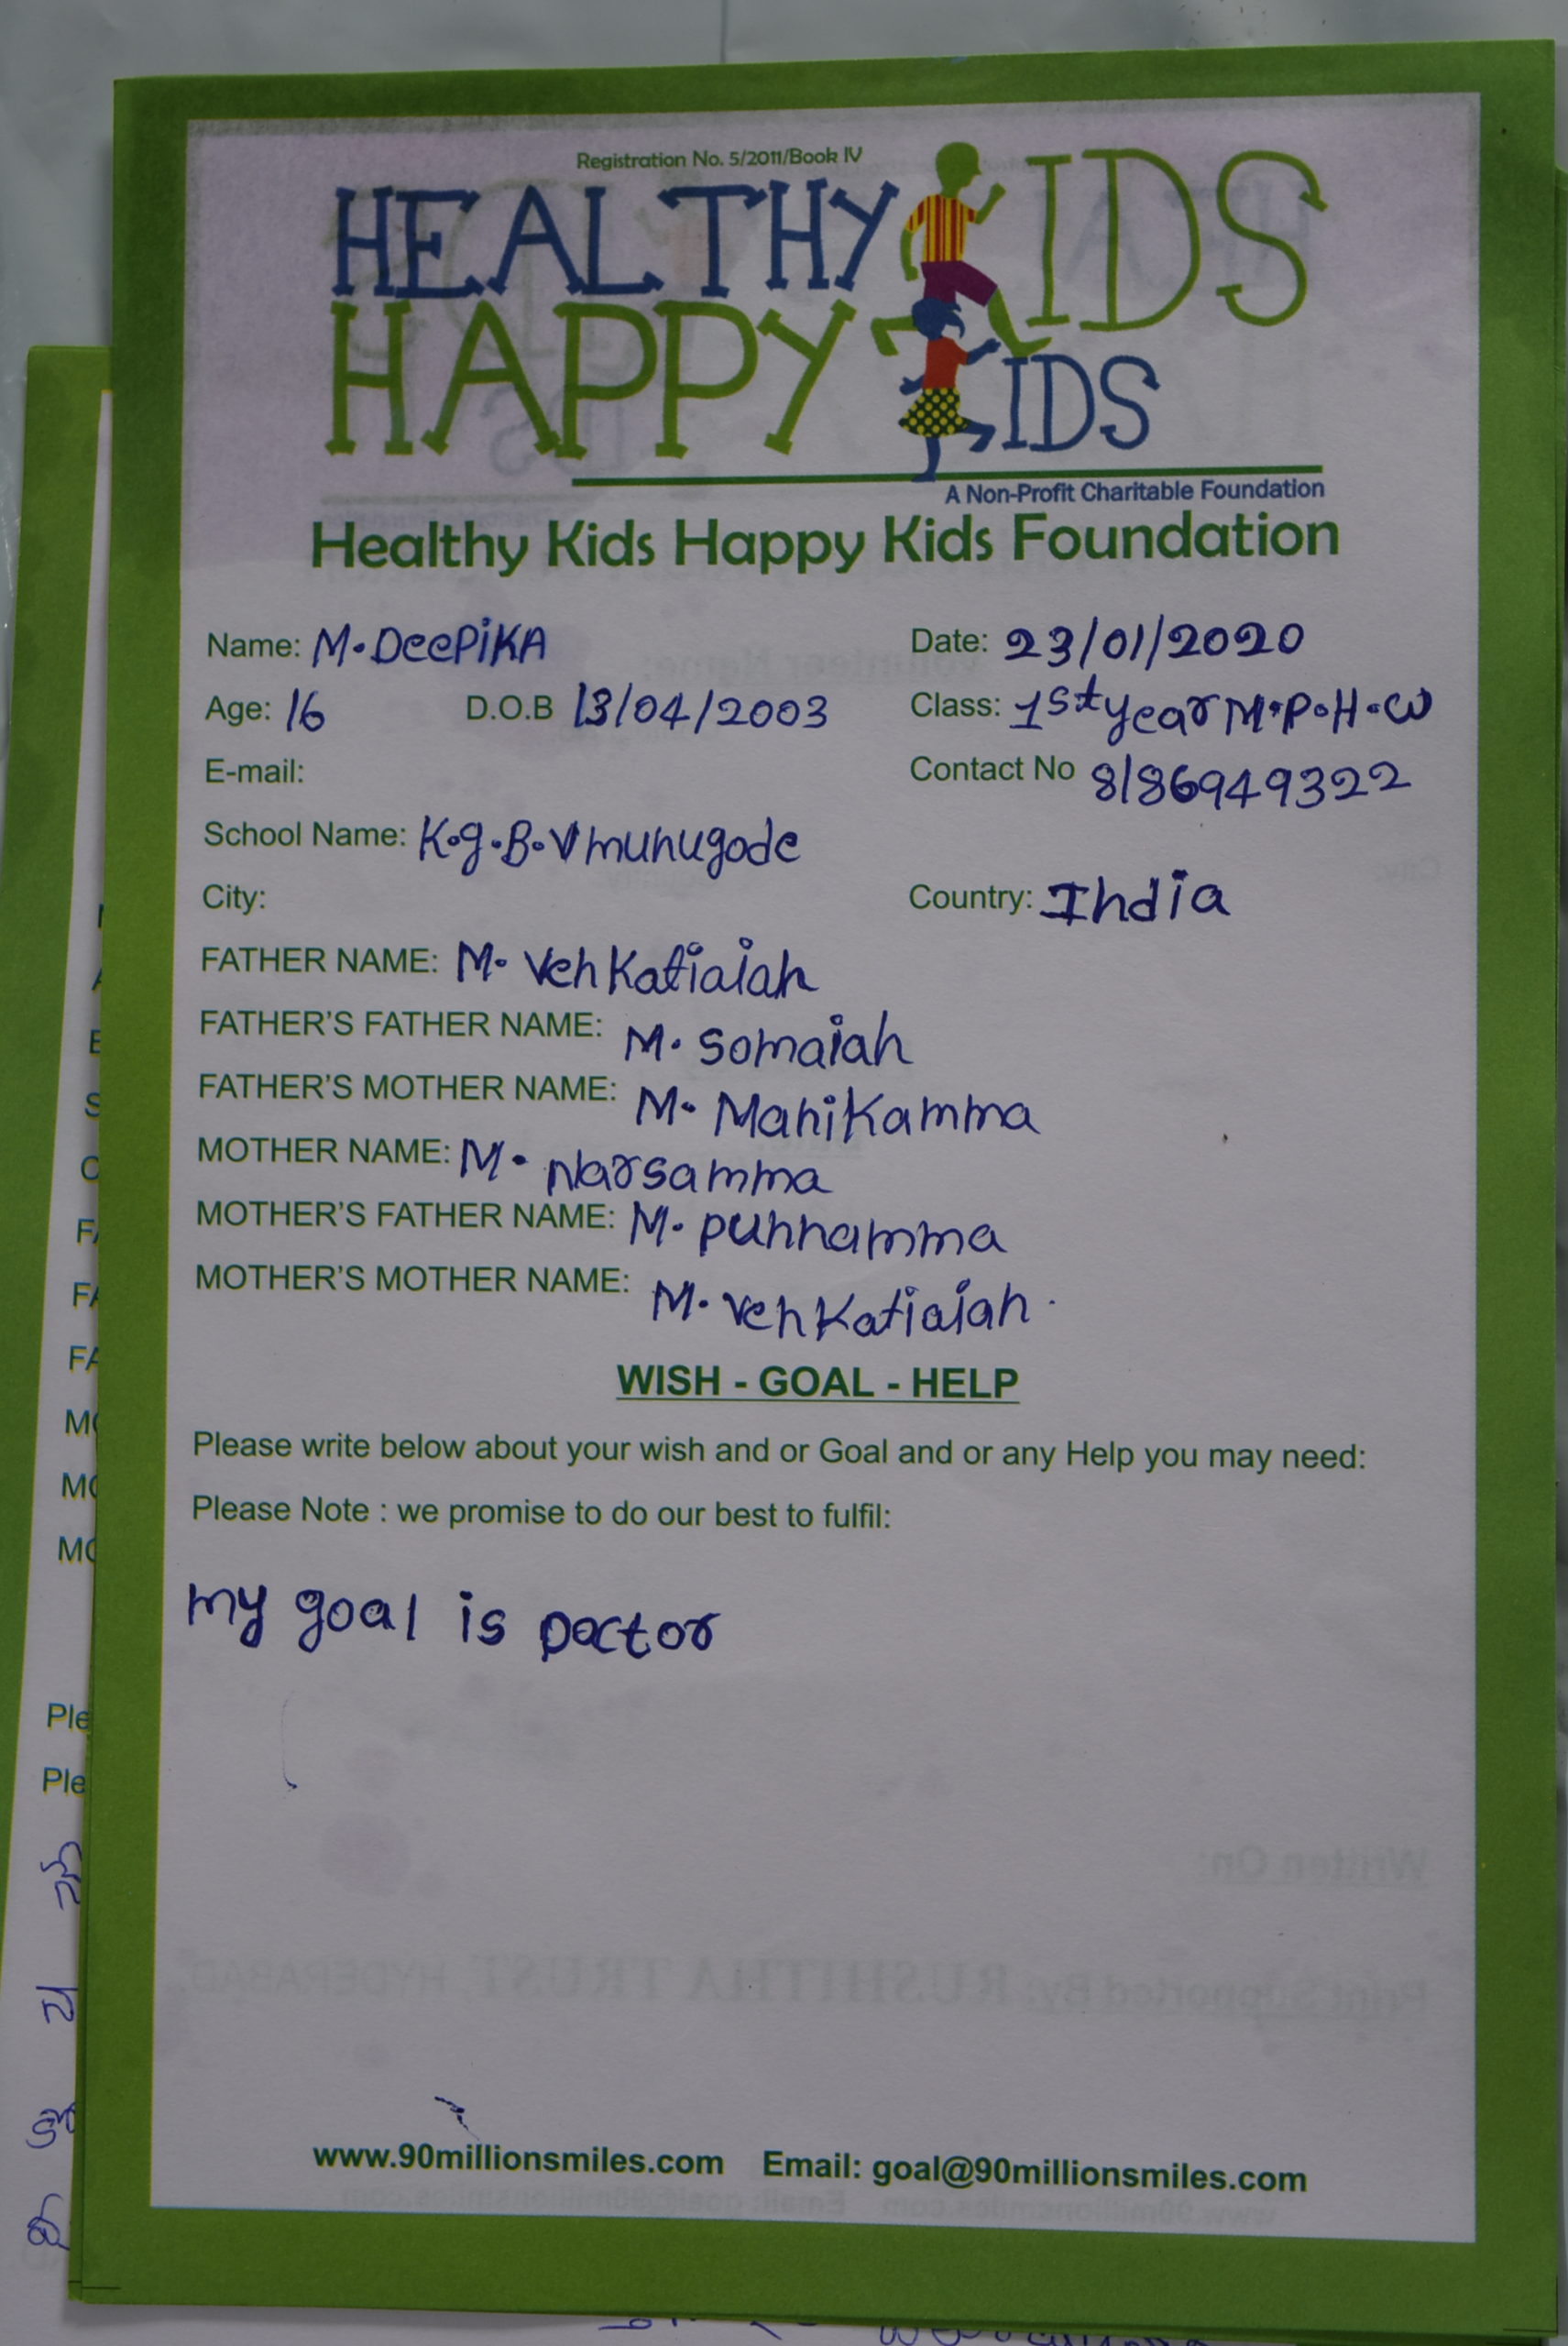 Registration No. 5/2011/Book IV
HEALTHY KIDS
HAPPY KIDS
A Non-Profit Charitable Foundation
Healthy Kids Happy Kids Foundation
Name: M. DeePiKA Date: 23/01/2020
Age: 16 D.O.B 13/04/2003 Class: 1st year M.P.H.W
E-mail: Contact No 8186949322
School Name: K.g.B.V munugode
City: Country: India
FATHER NAME: M. Venkatiaiah
FATHER'S FATHER NAME: M. Somaiah
FATHER'S MOTHER NAME: M. Manikamma
MOTHER NAME: M. Narsamma
MOTHER'S FATHER NAME: M. punnamma
MOTHER'S MOTHER NAME: M. Venkatiaiah.
WISH - GOAL - HELP
Please write below about your wish and or Goal and or any Help you may need:
Please Note : we promise to do our best to fulfil:
my goal is Doctor
www.90millionsmiles.com Email: goal@90millionsmiles.com